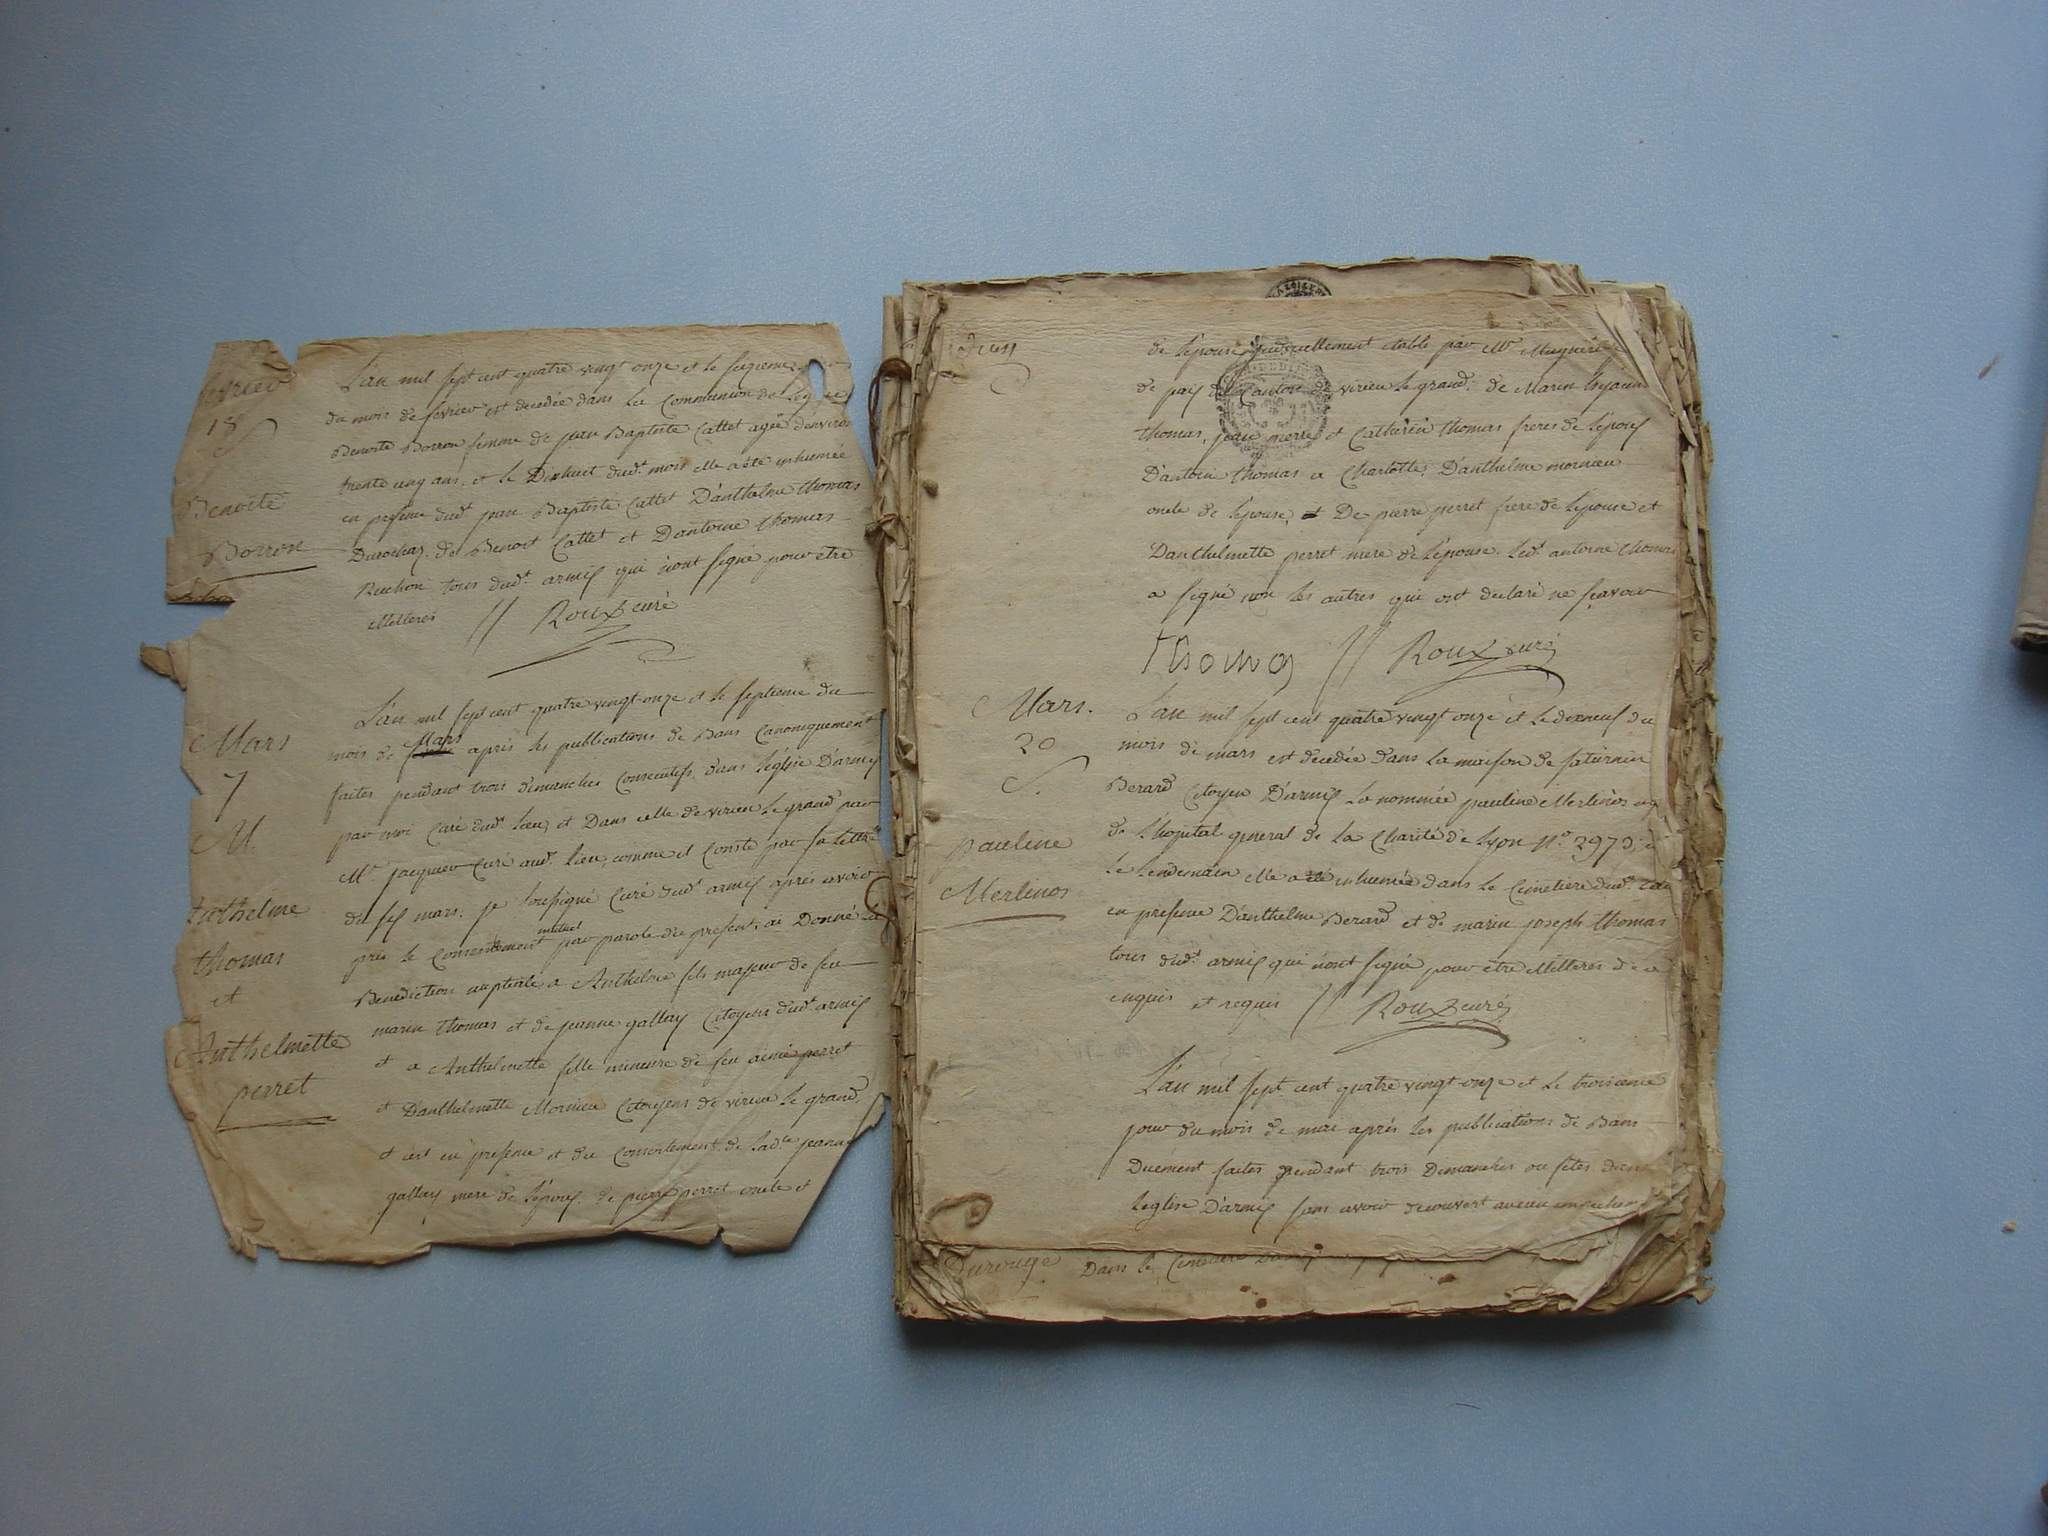 fevrier
18
S
Benoite
Borron
L'an mil sept cent quatre vingt onze et le seizieme
du mois de fevrier est decedée dans la Communion de
Benoite Borron femme de jean Baptiste Cattet agée denviron
trente cinq ans, et le Dixhuit dudt. mois elle a été inhumée
en presence dudt jean Baptiste Cattet D'anthelme thomas
de Benoit Cattet et D'antoine thomas
Ruchon tous dudt. armis qui n'ont signé pour être
illitterés // Roux curé
Mars
7
M.
Anthelme
thomas
et
Anthelmette
perret
L'an mil sept cent quatre vingt onze et le septieme du
mois de Mars après les publications de Bans Canoniquement
faites pendant trois dimanches Consecutifs dans l'église D'armis
par moi Curé dudt. lieu, et Dans celle de virieu le grand par
Mr. jacquier Curé audt. Lieu, comme il Conste par sa lettre
du six mars. je soussigné Curé dudt armis après avoir
pris le Consentement mutuel par parole de present, ai Donné la
Benediction nuptiale a Anthelme fils majeur de feu
marin thomas et de jeanne gallay Citoyens dudt. armis
et a Anthelmette fille mineure de feu aimé perret
et D'anthelmette Mornieu Citoyens de virieu le grand,
et ce en presence et du Consentement de ladte jeanne
gallay mere de l'époux, de pierre perret oncle et
de l'épouse judiciellement etabli par Mr.
de paix du Canton de virieu le grand, de Marin
thomas, jean pierre et Catherin thomas freres de l'époux
D'antoine thomas a Charlotte, D'anthelme mornieu
oncle de l'épouse, et De pierre perret frere de l'épouse et
D'anthelmette perret mere de l'épouse. ledt. antoine thomas
a signé non les autres qui ont declaré ne sçavoir
thomas // Roux curé
Mars.
20
S.
pauline
Merlinos
L'an mil sept cent quatre vingt onze et le dixneuf du
mois de mars est decedée dans la maison de saturnin
Berard Citoyen D'armis la nommée pauline Merlinos
de l'hopital general de la Charité de Lyon No. 2973,
le lendemain elle a été inhumée dans le Cimetiere dudt.
en presence D'anthelme Berard et de marin joseph thomas
tous dudt. armis qui n'ont signé pour être illitterés de ce
enquis et requis // Roux curé
L'an mil sept cent quatre vingt onze et le troisieme
jour du mois de mai après les publications de Bans
Duement faites pendant trois Dimanches ou fêtes dans
l'eglise D'armis sans avoir decouvert aucun
Dans le Cimetiere